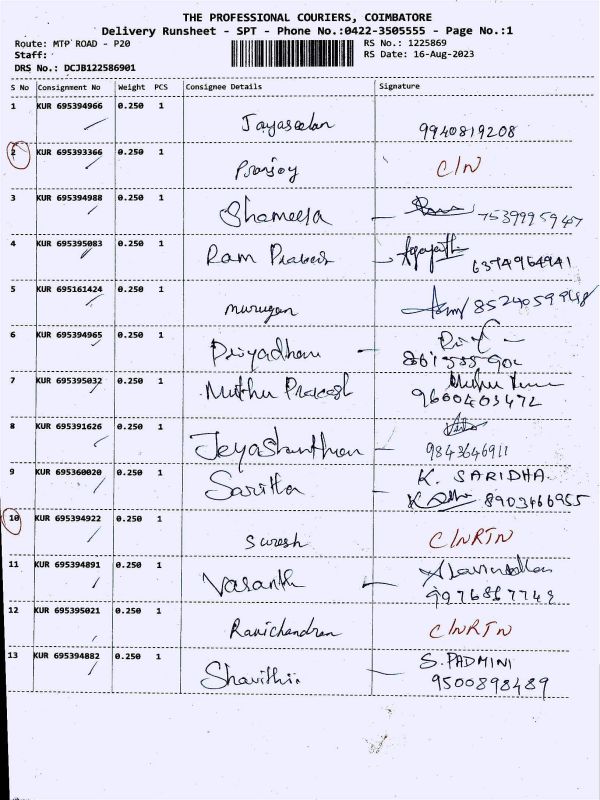 THE PROFESSIONAL COURIERS, COIMBATORE
Delivery Runsheet - SPT - Phone No.:0422-3505555 - Page No.:1
Route: MTP ROAD - P20 RS No.: 1225869
Staff: RS Date: 16-Aug-2023
DRS No.: DCJB122586901
S No Consignment No Weight PCS Consignee Details Signature
1 KUR 695394966 0.250 1 Jayaseelan 9940819208
2 KUR 695393366 0.250 1 Pranjoy C/N
3 KUR 695394988 0.250 1 Shameela - 7539995947
4 KUR 695395083 0.250 1 Ram Prakash - 6374964941
5 KUR 695161424 0.250 1 murugan 8524059948
6 KUR 695394965 0.250 1 Priyadharu -
7 KUR 695395032 0.250 1 Muthu Prakash 9600403472
8 KUR 695391626 0.250 1 Jeyashanthran - 9843646911
9 KUR 695360020 0.250 1 Saritha - K. SARIDHA
8903466955
10 KUR 695394922 0.250 1 Suresh C/NRTN
11 KUR 695394891 0.250 1 Vasanth -
12 KUR 695395021 0.250 1 Ravichandran C/NRTN
13 KUR 695394882 0.250 1 - S. PADMINI
9500898489